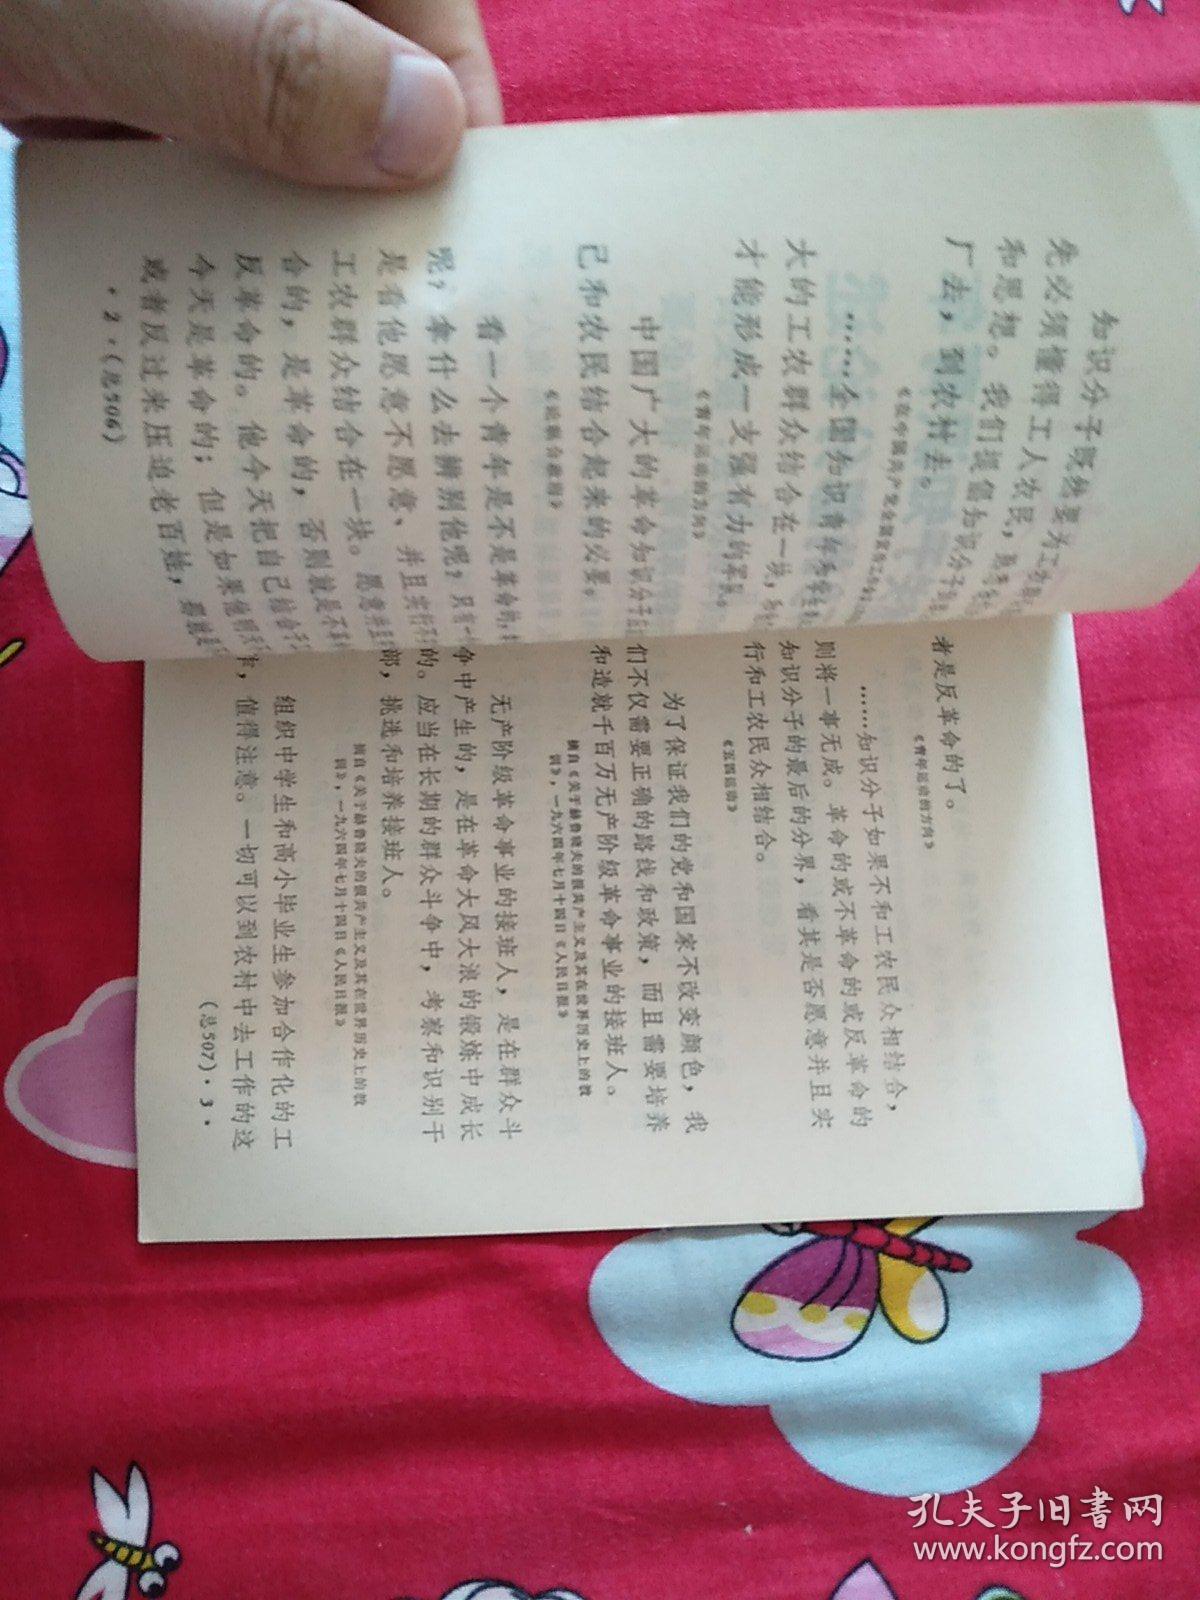 知识分子既然要为工农
先必须懂得工人农民，熟悉
和思想。我们提倡知识分子
厂去，到农村去。
《在中国共产党全国宣传工作会
……全国知识青年和学生
大的工农群众结合在一块，和
才能形成一支强有力的军队。
《青年运动的方向》
中国广大的革命知识分子
己和农民结合起来的必要。
《论联合政府》
看一个青年是不是革命的，
呢？拿什么去辨别他呢？只有一
是看他愿意不愿意、并且实行不
工农群众结合在一块。愿意并且
合的，是革命的，否则就是不革
反革命的。他今天把自己结合于
今天是革命的；但是如果他明天
或者反过来压迫老百姓，那就是
·2·（总506）
者是反革命的了。
《青年运动的方向》
……知识分子如果不和工农民众相结合，
则将一事无成。革命的或不革命的或反革命的
知识分子的最后的分界，看其是否愿意并且实
行和工农民众相结合。
《五四运动》
为了保证我们的党和国家不改变颜色，我
们不仅需要正确的路线和政策，而且需要培养
和造就千百万无产阶级革命事业的接班人。
摘自《关于赫鲁晓夫的假共产主义及其在世界历史上的教
训》，一九六四年七月十四日《人民日报》
无产阶级革命事业的接班人，是在群众斗
争中产生的，是在革命大风大浪的锻炼中成长
的。应当在长期的群众斗争中，考察和识别干
部，挑选和培养接班人。
摘自《关于赫鲁晓夫的假共产主义及其在世界历史上的教
训》，一九六四年七月十四日《人民日报》
组织中学生和高小毕业生参加合作化的工
作，值得注意。一切可以到农村中去工作的这
（总507）·3·
孔夫子旧书网
www.kongfz.com